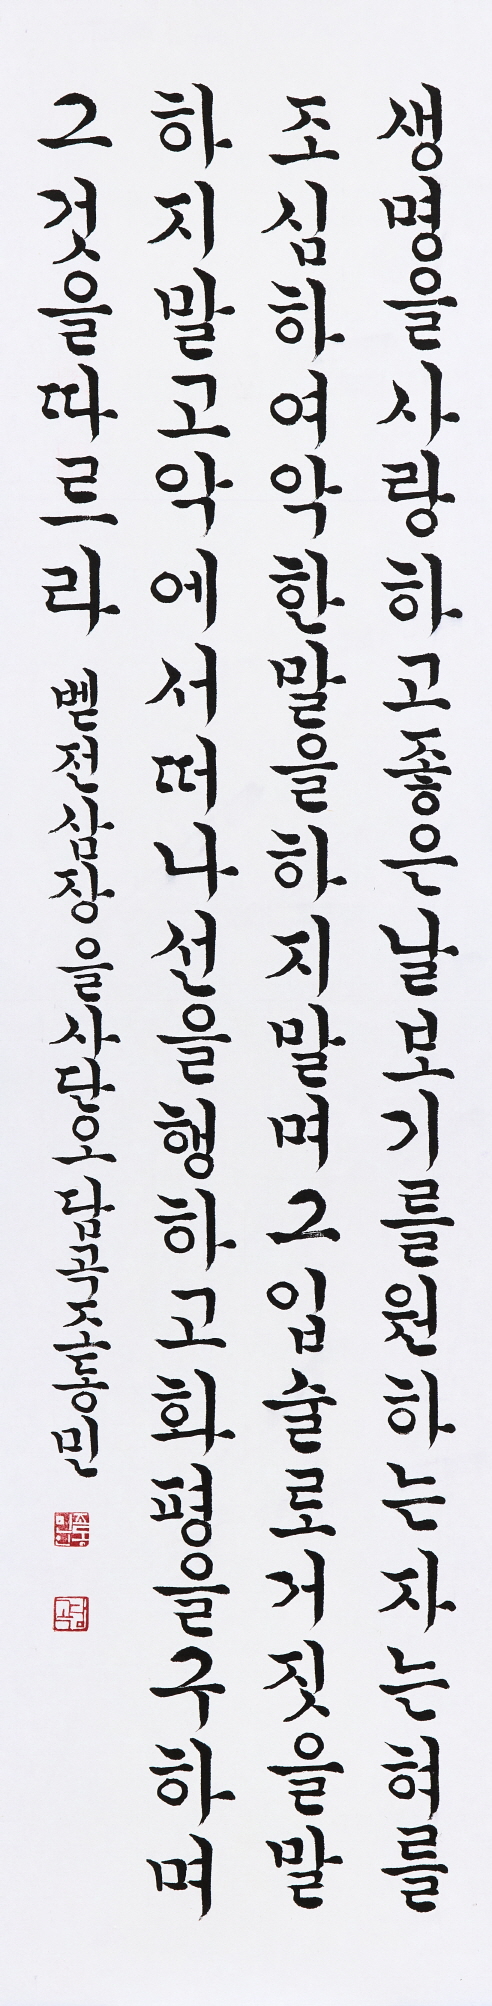 생명을사랑하고좋은날보기를원하는자는혀를
조심하여악한말을하지말며그입술로거짓을말
하지말고악에서떠나선을행하고화평을구하며
그것을따르라 벧전삼장을사단오 담곡조동민